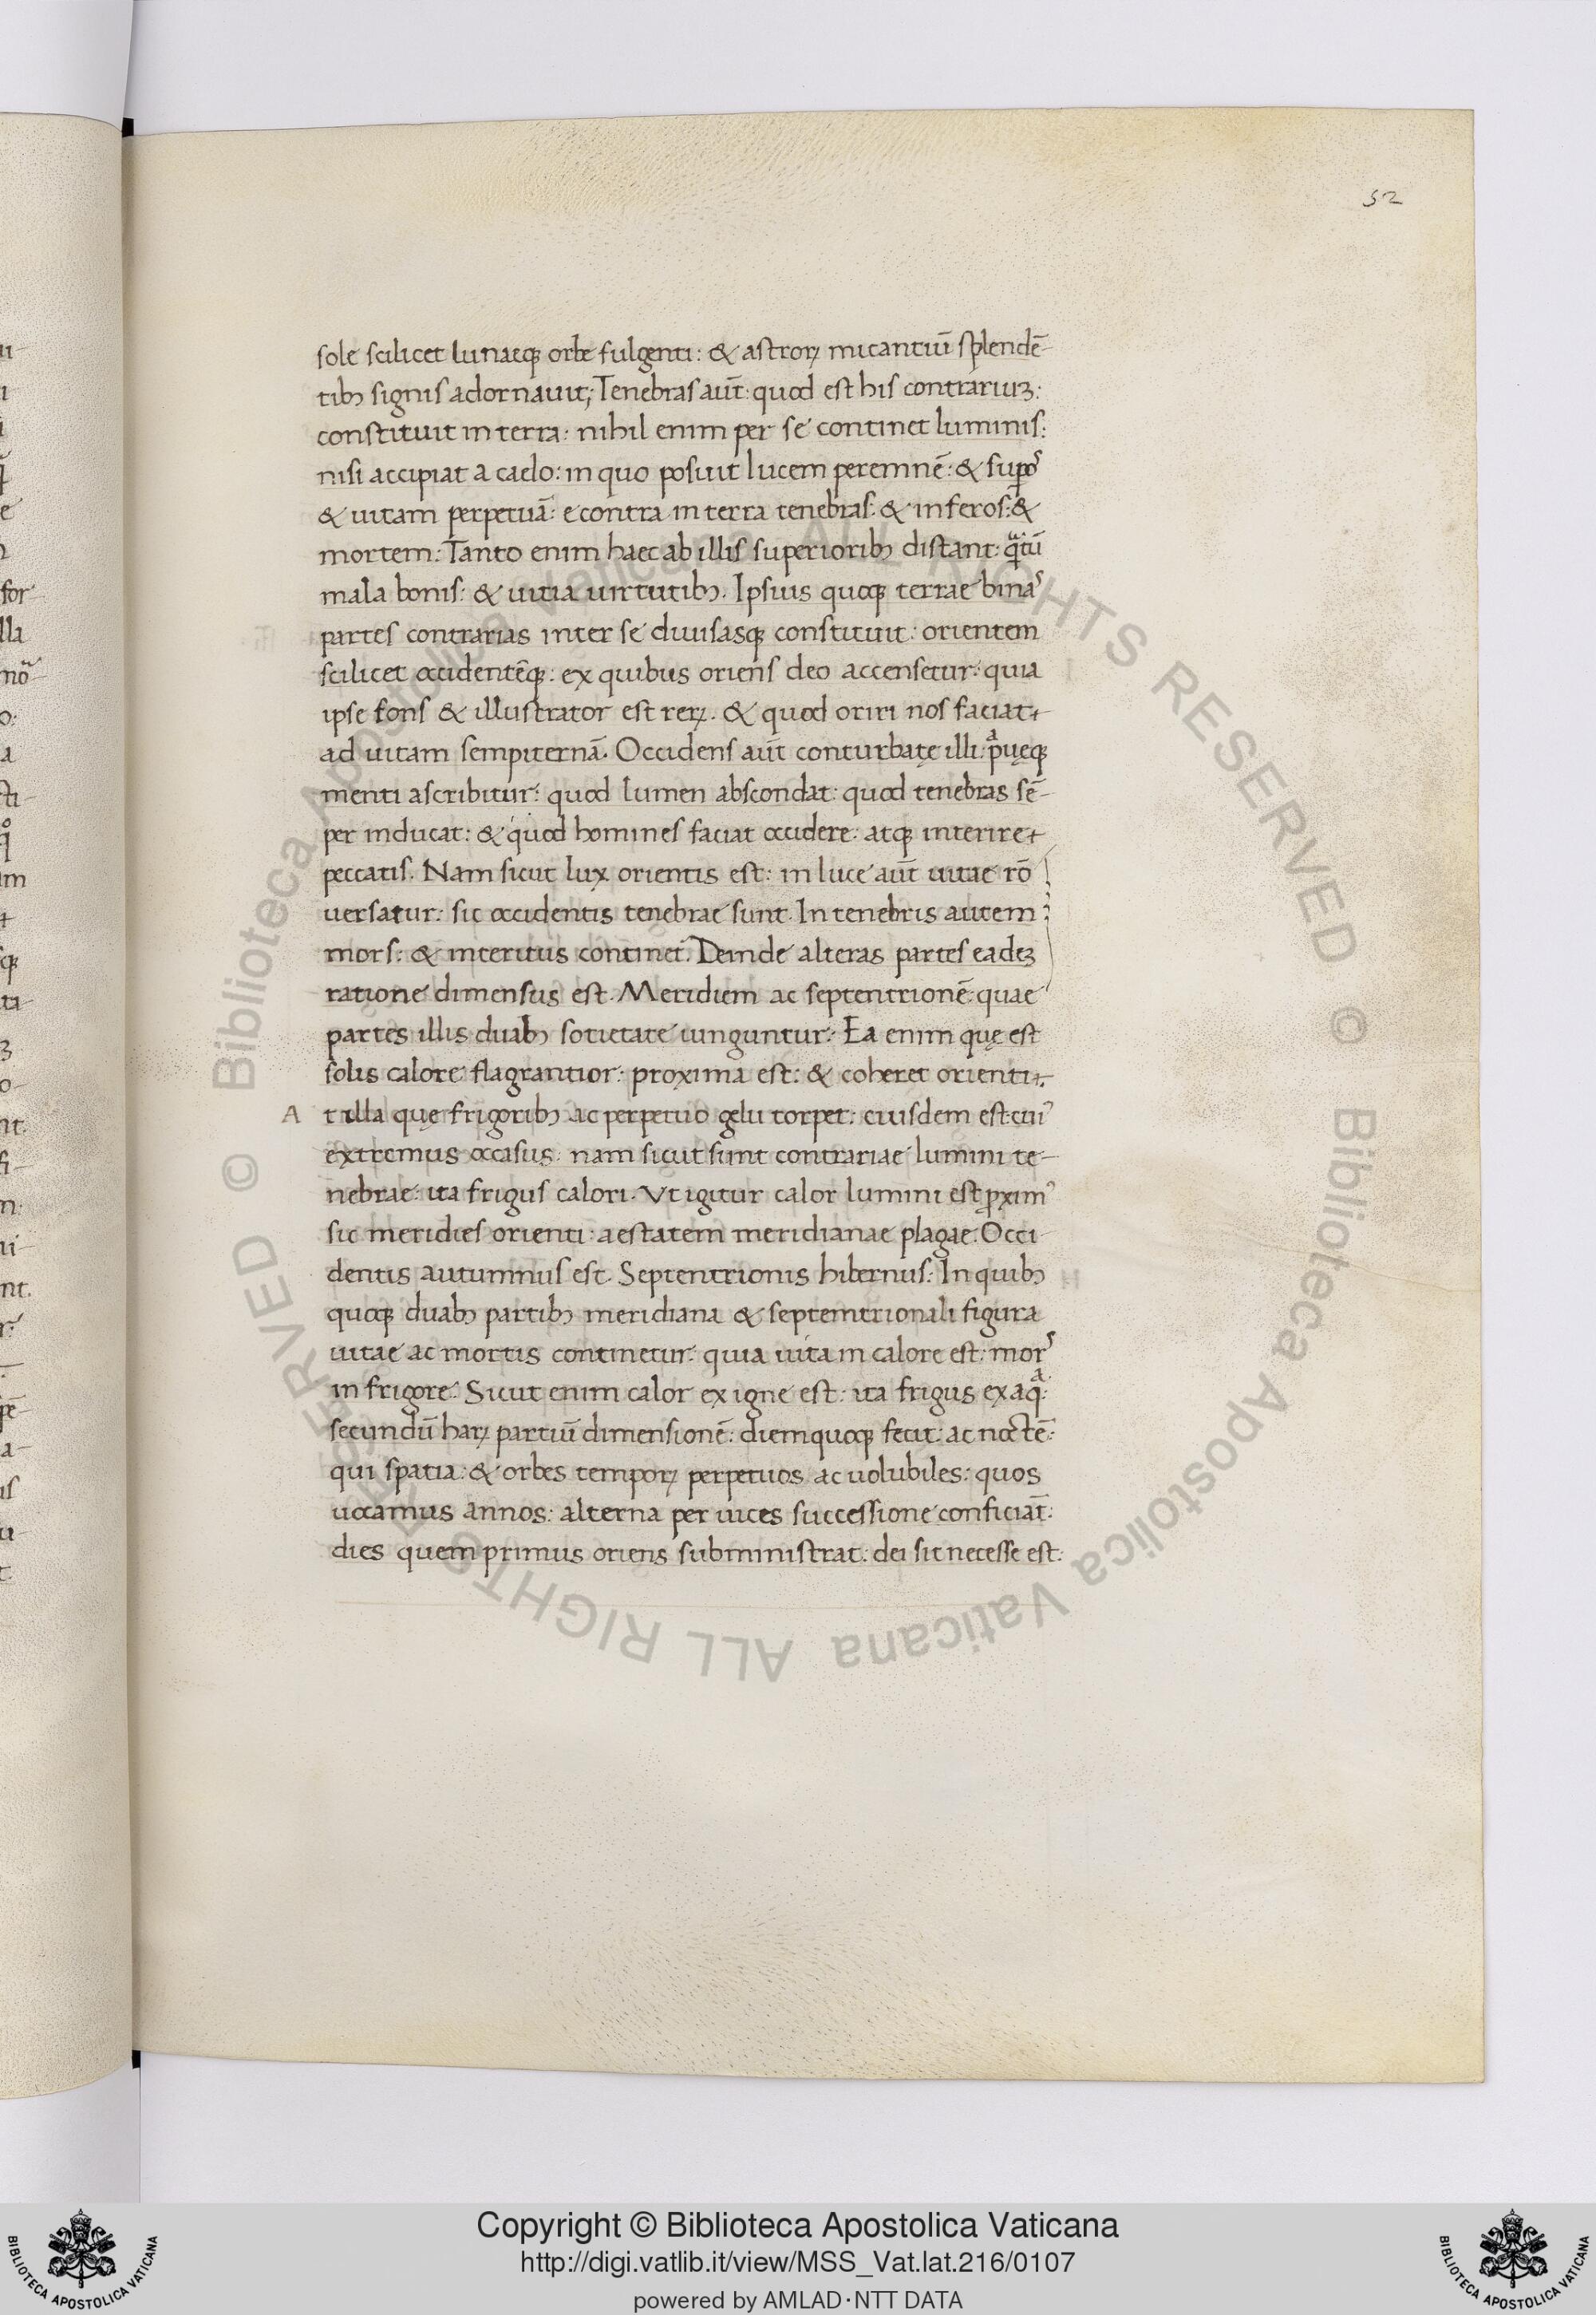 52
sole scilicet lunaeq; orbe fulgenti: & astroꝝ micantiū splendē-
tibꝫ signis adornauit; Tenebras aūt: quod est his contrariuꝫ:
constituit in terra: nihil enim per se continet luminis:
nisi accipiat a caelo: in quo posuit lucem peremnē: & supoꝰ
& uitam perpetuā: e contra in terra tenebras: & inferos: &
mortem: Tanto enim haec ab illis superioribꝫ distant: qᵃtū
mala bonis: & uitia uirtutibꝫ. Ipsius quoqꝫ terrae binas
partes contrarias inter se diuisasqꝫ constituit: orientem
scilicet occidentēqꝫ: ex quibus oriens deo accensetur: quia
ipse fons & illustrator est reꝝ. & quod oriri nos faciat
ad uitam sempiternā. Occidens aūt conturbatę illi: pᵃuęqꝫ
menti ascribitur: quod lumen abscondat: quod tenebras sē-
per inducat: & quod homines faciat occidere: atqꝫ interire
peccatis. Nam sicut lux orientis est: in luce aūt uitae rō
uersatur: sic occidentis tenebrae sunt. In tenebris autem
mors: & interitus continet. Deinde alteras partes eadeꝫ
ratione dimensus est. Meridiem ac septentrionē: quae
partes illis duabꝫ sotietate iunguntur: Ea enim quę est
solis calore flagrantior: proxima est: & coheret orienti.
A t illa quę frigoribꝫ ac perpetuo gelu torpet: eiusdem est: cuiꝰ
extremus occasus: nam sicut sunt contrariae lumini te-
nebrae: ita frigus calori. Vt igitur calor lumini est ꝓximꝰ
sic meridies orienti: aestatem meridianae plagae: Occi-
dentis autumnus est. Septentrionis hibernus: In quibꝫ
quoqꝫ duabꝫ partibꝫ meridiana & septemtrionali figura
uitae ac mortis continetur: quia uita in calore est: mors
in frigore: Sicut enim calor ex igne est: ita frigus ex aqᵃ:
secundū haꝝ partiū dimensionē: diemquoqꝫ fecit: ac noctē:
qui spatia: & orbes tempoꝝ perpetuos ac uolubiles: quos
uocamus annos: alterna per uices successione conficiāt:
dies quem primus oriens subministrat: dei sit necesse est:
© Biblioteca Apostolica Vaticana ALL RIGHTS RESERVED © Biblioteca Apostolica Vaticana ALL RIGHTS RESERVED
Copyright © Biblioteca Apostolica Vaticana
http://digi.vatlib.it/view/MSS_Vat.lat.216/0107
powered by AMLAD·NTT DATA
BIBLIOTECA APOSTOLICA VATICANA
BIBLIOTECA APOSTOLICA VATICANA